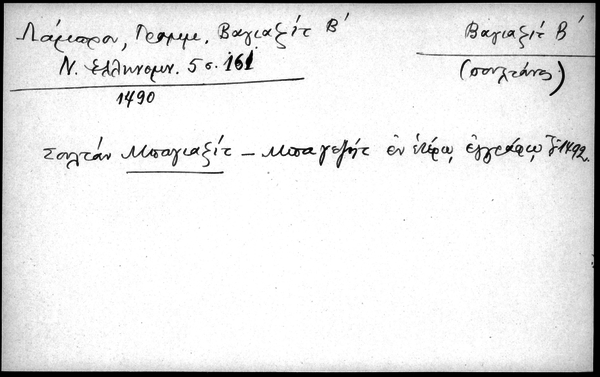 Λάμπρου, Γράμμ. Βαγιαζίτ Β΄
Ν. Ελληνομν. 5 σ. 161
1490
Βαγιαζίτ Β΄
(σουλτάνος)
Σουλτάν Μπαγιαζίτ – Μπαγεζήτ ἐν ἑτέρῳ ἐγγράφῳ 1492.